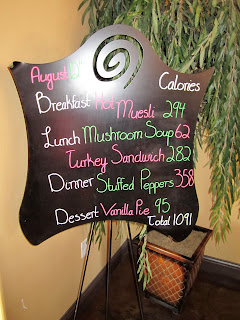 August
Calories
Breakfast Hot Muesli 294
Lunch Mushroom Soup 62
Turkey Sandwich 282
Dinner Stuffed Peppers 358
Dessert Vanilla Pie 95
Total 1091